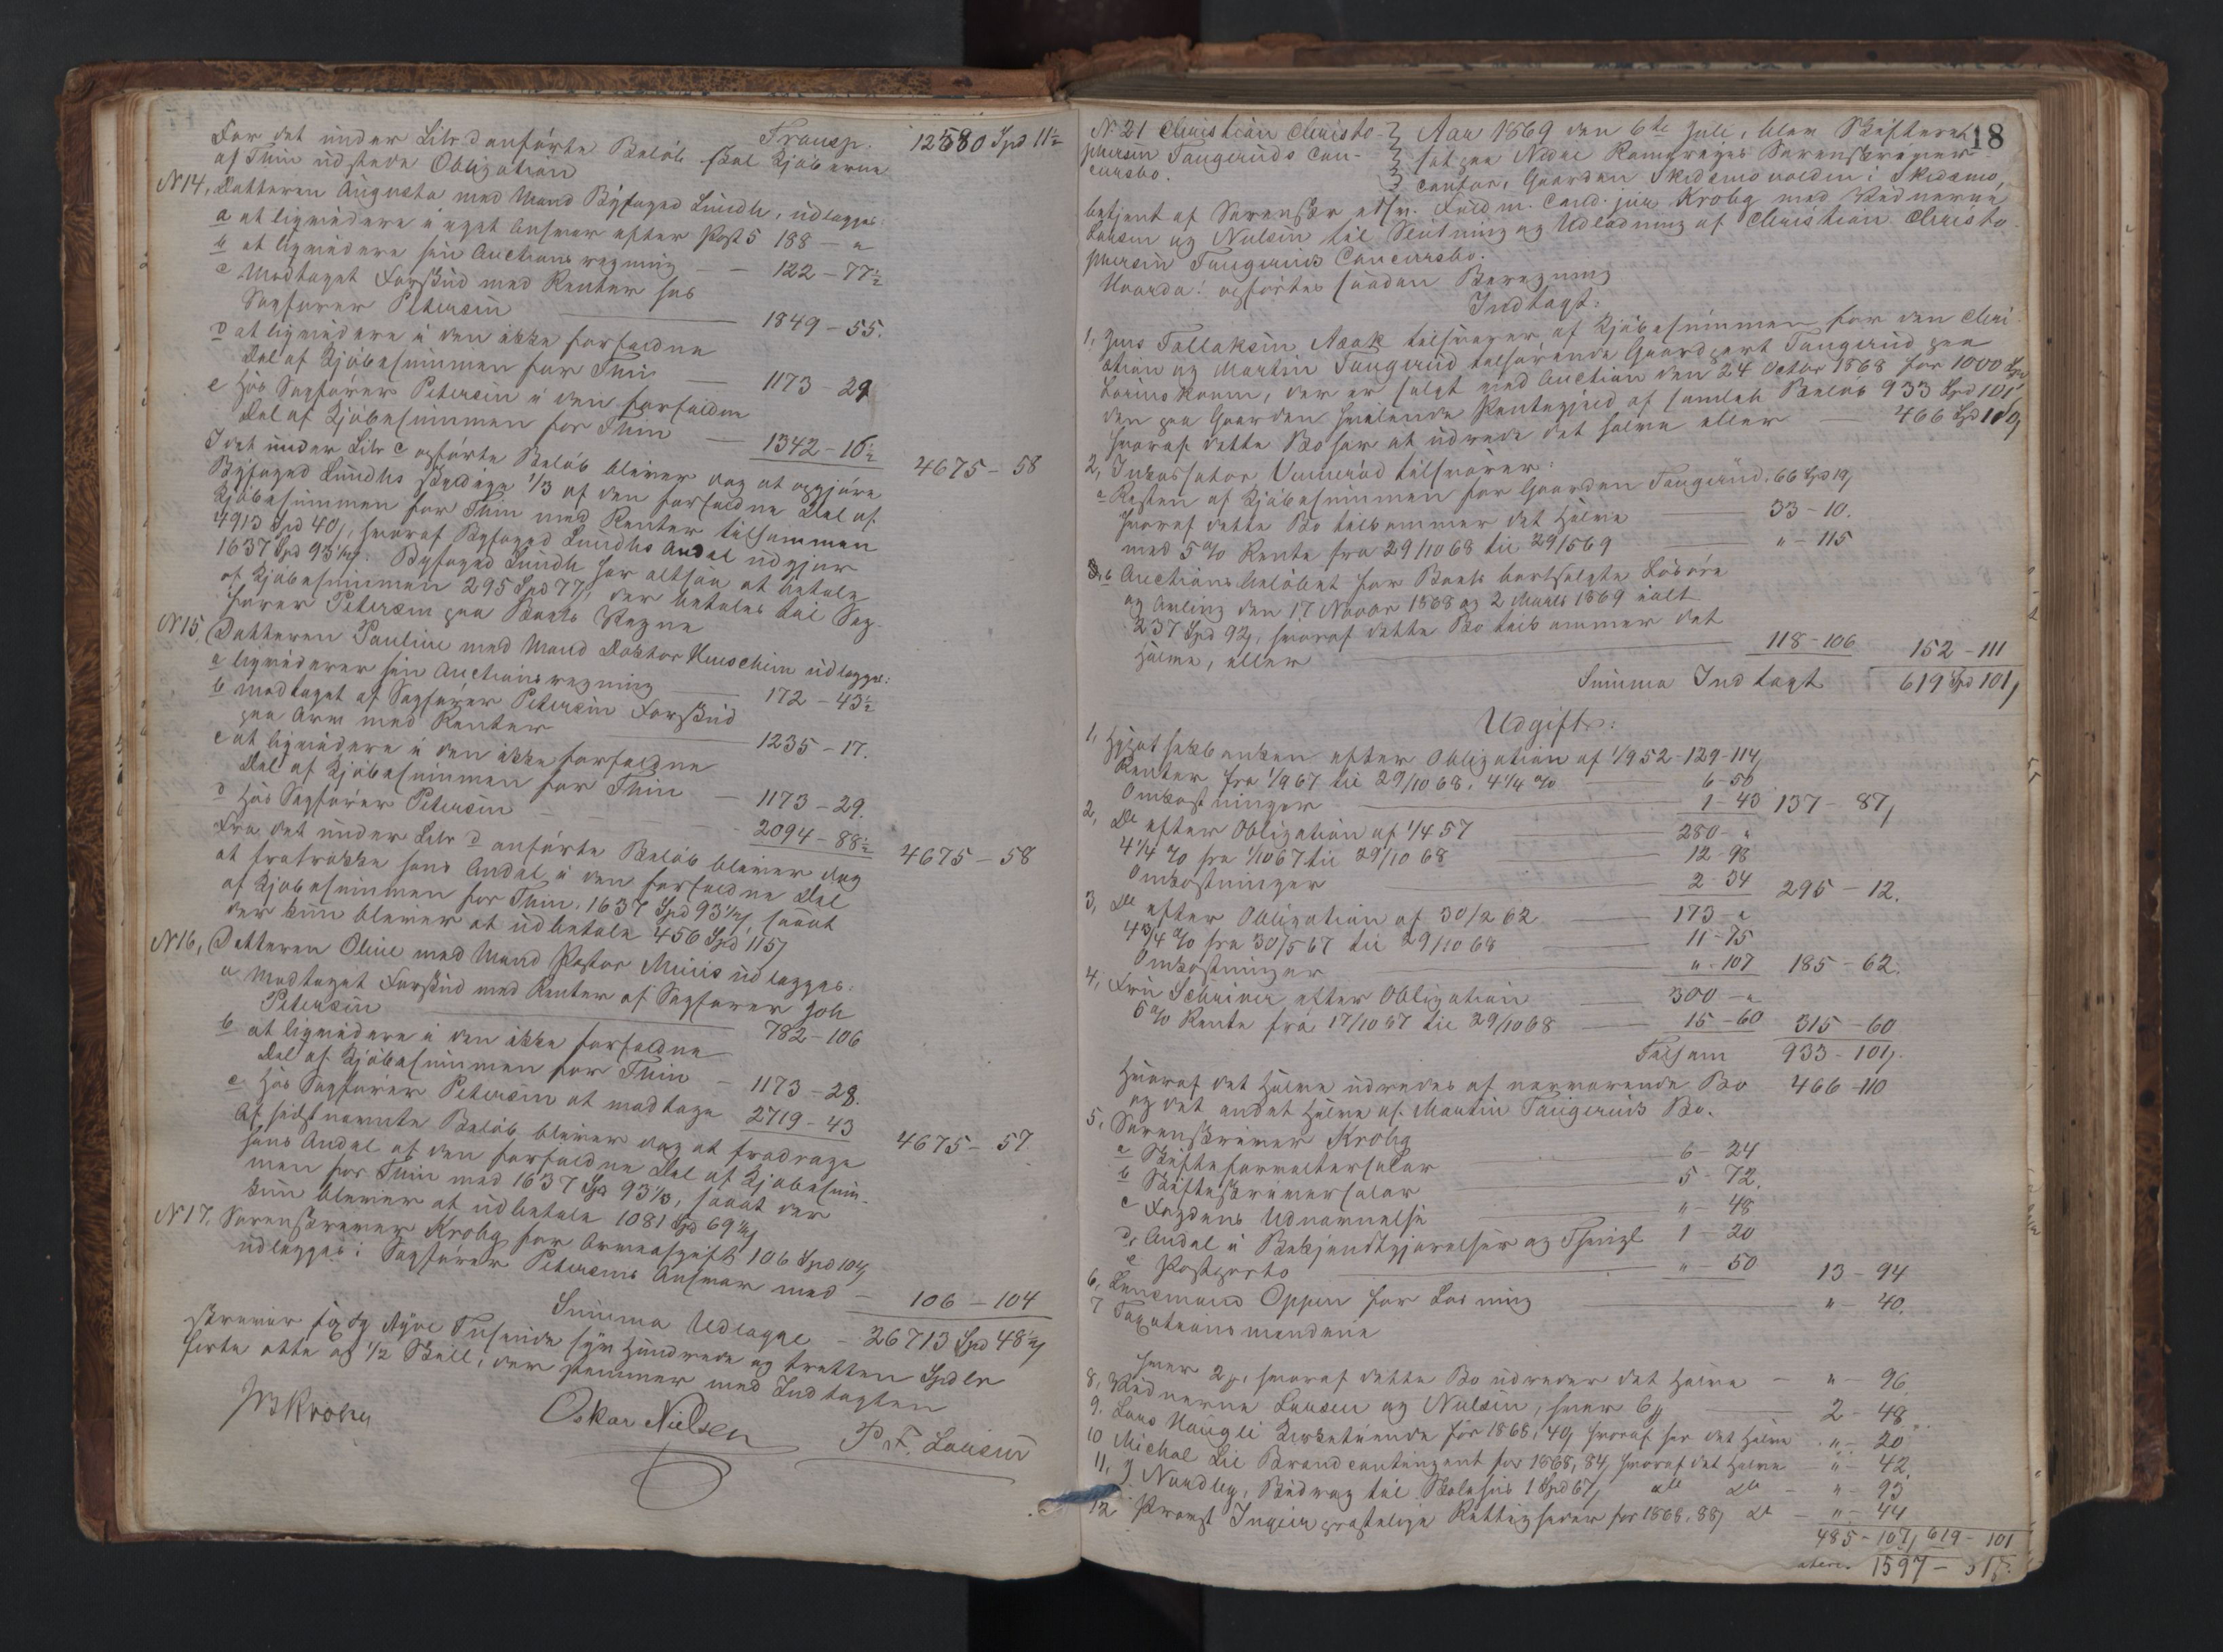 For det under Litr d anførte Beløb skal Kjøberne
af Thin udstede Obligation
Transp. 12580 Spd 11½
N14, Datteren Augusta med Mand Byfoged Lundh, udlægges:
a at liqvidere i eget Ansvar efter Post 5 188 – "
b at liqvidere sin Auctionsregning – – 122 – 77½
c Modtaget Forskud med Renter hos
Sagfører Petersen 1849 – 55.
d at liqvidere i den ikke forfaldne
Del af Kjøbesummen for Thin – 1173 – 29
e Hos Sagfører Petersen i den forfaldne
Del af Kjøbesummen for Thin – 1342 – 16½
4675 – 58
I det under Litr e opførte Beløb bliver dog at opgjøre
Byfoged Lundhs skyldige 1/3 af den forfaldne Del af
Kjøbesummen for Thin med Renter tilsammen
4913 Spd 40 β, hvoraf Byfoged Lundhs Andel udgjør
1637 Spd 93⅓ β. Byfoged Lundh har altsaa at betale
af Kjøbesummen 295 Spd 77 β, der betales til Sag-
fører Petersen paa Boets Vegne
N15, Datteren Pauline med Mand Doktor udlægges:
a liqviderer sin Auctionsregning 172 – 43½
b modtaget af Sagfører Petersen Forskud
paa Arv med Renter 1235 – 17.
c at liqvidere i den ikke forfaldne
Del af Kjøbesummen for Thin – 1173 – 29.
d Hos Sagfører Petersen – 2094 – 88½
4675 – 58
Fra det under Litr d anførte Beløb bliver dog
at fratrække hans Andel i den forfaldne Del
af Kjøbesummen for Thin, 1637 Spd 93⅓ β, saaat
der kun bliver at udbetale 456 Spd 115 β
N16, Datteren Oline med Mand Pastor udlægges:
a Modtaget Forskud med Renter af Sagfører Joh
Petersen 782 – 106
b at liqvidere i den ikke forfaldne
Del af Kjøbesummen for Thin – 1173 – 28.
c. Hos Sagfører Petersen at modtage 2719 – 43
4675 – 57.
Af sidstnævnte Beløb bliver dog at fradrage
hans Andel af den forfaldne Del af Kjøbesum-
men for Thin med 1637 Spd 93⅓, saaat der
kun bliver at udbetale 1081 Spd 69½ β
N17, Sorenskriver Krohg for Arveafgift 106 Spd 104 β
udlægges i Sagfører Petersens Ansvar med – 106 – 104
Summa Udlagte – 26713 Spd 48½ β
skriver sex og tyve Tusinde syv Hundrede og tretten Spdlr
førti otte og ½ Skill, der stemmer med Indtægten
Krohg
Oskar Nielsen
P. F. Larsen
18
N. 21 Christian Christo-
phersen Taugeruds Con-
cursbo.
Aar 1869 den 6te Juli, blev Skifteret
sat paa Nedre Romeriges Sorenskriver
contor, Gaarden Skedsmovolden i Skedsmo,
betjent af Sorenskr ed Fuldm. Cand. jur Krohg med Vidnerne
Larsen og Nielsen til Slutning og Udlodning af Christian Christo-
phersen Taugeruds Concursbo.
Hvorda: opførtes saadan Beregning
Indtægt:
1, Jens Tollaksen Aaak tilsvarer af Kjøbesummen for den Chri-
stian og Martin Taugerud tilhørende Gaardpart Taugerud paa
Lørenskoven, der er solgt ved Auction den 24 Octbr 1868 for 1000 Spd
den paa Gaarden hvilende Pantegjeld af samlet Beløb 933 Spd 101
hvoraf dette Bo har at udrede det halve eller – 466 Spd 110 β
2, Inkassator tilsvarer:
a Resten af Kjøbesummen for Gaarden Taugerud, 66 Spd 19 β
hvoraf dette Bo tilkommer det Halve 33 – 10.
med 5 % Rente fra 29/10 68 til 29/5 69 " – 115
b Auctionsbeløbet for Boets bortsolgte Løsøre
og Avling den 17 Novbr 1868 og 2 Marts 1869 ialt
237 Spd 92 β, hvoraf dette Bo tilkommer det
Halve, eller 118 – 106 152 – 111
Summa Indtægt 619 Spd 101 β
Udgift:
1, Hypothekbanken efter Obligation af 1/9 52 – 129 – 114 β
Renter fra 1/9 67 til 29/10 68, 4¼ % 6 – 50
Omkostninger 1 – 43 137 – 87 β
2, Do efter Obligation af 1/4 57 280 – "
4¼ % fra 1/10 67 til 29/10 68 12 – 98
Omkostninger 2 – 34 295 – 12.
3, Do efter Obligation af 30/2 62 173 – "
4¾ % fra 30/5 67 til 29/10 68 11 – 75
Omkostninger " – 107 185 – 62.
4, Fru Schriver efter Obligation 300 – "
5 % Rente fra 17/10 67 til 29/10 68 15 – 60 315 – 60
Tilsam 933 – 101 β.
Hvoraf det Halve udredes af nærværende Bo 466 – 110
og det andet Halve af Martin Taugeruds Bo.
5, Sorenskriver Krohg
a Skifteforvaltersalær 6 – 24
b Skifteskriversalær 5 – 72.
c Fogdens Udnævnelse " – 48
d, Andel i Bekjendtgjørelser og Thingl 1 – 20
e Postporto " – 50 13 – 94
6, Lensmand Oppen for Læsning " – 40.
7 Taxationsmændene
hver 2 β, hvoraf dette Bo udreder det Halve – " – 96
8, Vidnerne Larsen og Nielsen, hver 6 β 2 – 48
9, Lars Haugli Kirketiende for 1868, 40 β hvoraf her det Halve " – 20
10 Michal Lie Brandcontingent for 1868, 84 β hvoraf det Halve " – 42.
11, J. Nordby, Bidrag til Skolehus 1 Spd 67 β do do – " – 93
12 Provst præstelige Rettigheder for 1868, 88 β do – " – 44
485 – 107 β 619 – 101
1597 –